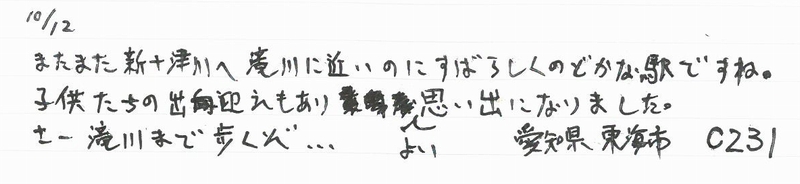 10/12
またまた新十津川へ 滝川に近いのにすばらしくのどかな駅ですね。
子供たちの出迎えもあり よい思い出になりました。
さー滝川まで歩くぞ… 愛知県東海市 C231